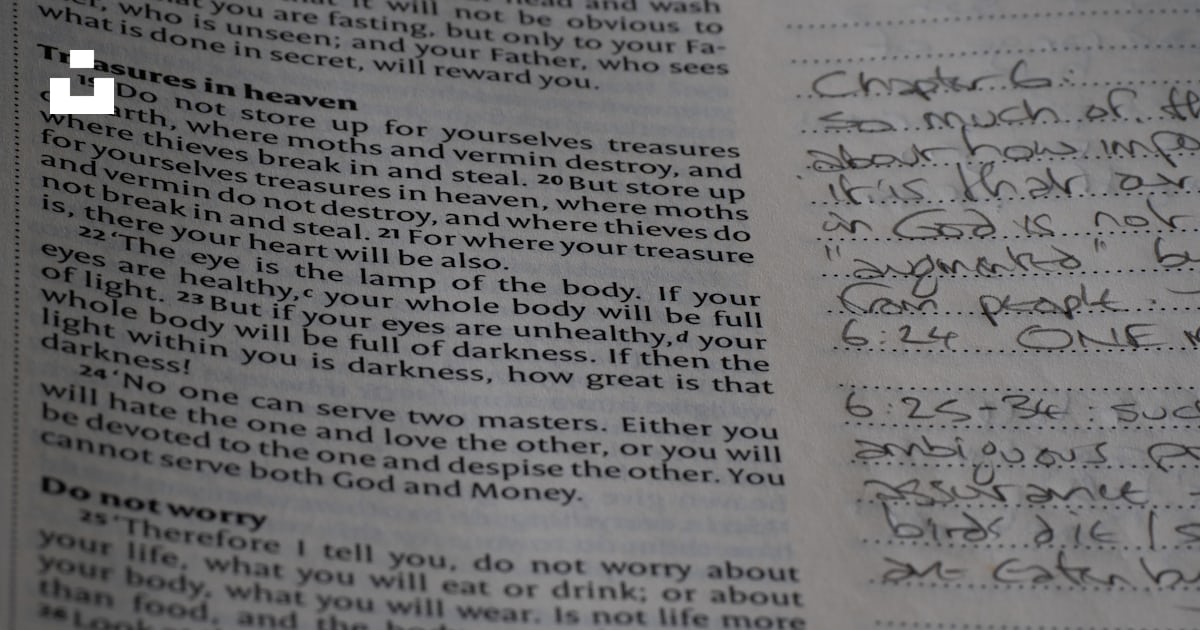 head and wash
that it will not be obvious to
that you are fasting, but only to your Fa-
who is unseen; and your Father, who sees
what is done in secret, will reward you.
Treasures in heaven
19 Do not store up for yourselves treasures
earth, where moths and vermin destroy, and
where thieves break in and steal. 20 But store up
for yourselves treasures in heaven, where moths
and vermin do not destroy, and where thieves do
not break in and steal. 21 For where your treasure
is, there your heart will be also.
22 ‘The eye is the lamp of the body. If your
eyes are healthy,c your whole body will be full
of light. 23 But if your eyes are unhealthy,d your
whole body will be full of darkness. If then the
light within you is darkness, how great is that
darkness!
24 ‘No one can serve two masters. Either you
will hate the one and love the other, or you will
be devoted to the one and despise the other. You
cannot serve both God and Money.
Do not worry
25 ‘Therefore I tell you, do not worry about
your life, what you will eat or drink; or about
your body, what you will wear. Is not life more
than food, and the
26 Look
Chapter 6:
So much of
about how
it is that
in God is not
"augmented"
from people.
6:24 ONE
6:25-34:
ambiguous
assurance
birds die
eaten